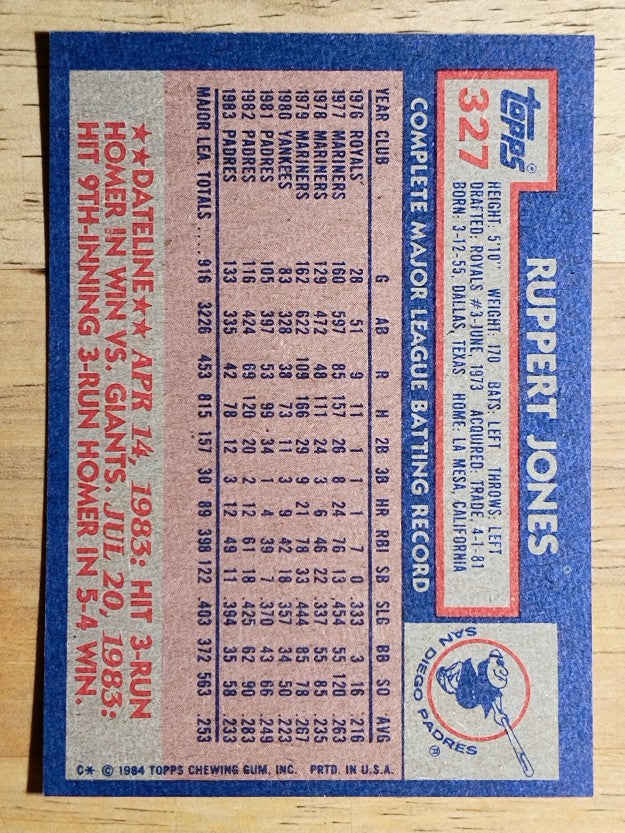 topps®
327
RUPPERT JONES
HEIGHT: 5'10" WEIGHT: 170 BATS: LEFT THROWS: LEFT
DRAFTED: ROYALS #3-JUNE, 1973 ACQUIRED: TRADE, 4-1-81
BORN: 3-12-55, DALLAS, TEXAS HOME: LA MESA, CALIFORNIA
SAN DIEGO PADRES ®
COMPLETE MAJOR LEAGUE BATTING RECORD
YEAR CLUB G AB R H 2B 3B HR RBI SB SLG BB SO AVG
1976 ROYALS 28 51 9 11 1 1 1 7 0 .333 3 16 .216
1977 MARINERS 160 597 85 157 26 8 24 76 13 .454 55 120 .263
1978 MARINERS 129 472 48 111 24 3 6 46 22 .337 55 85 .235
1979 MARINERS 162 622 109 166 29 9 21 78 33 .444 85 78 .267
1980 YANKEES 83 328 38 73 11 3 9 42 18 .357 34 50 .223
1981 PADRES 105 397 53 99 34 1 4 39 7 .370 43 66 .249
1982 PADRES 116 424 69 120 20 2 12 61 18 .425 62 90 .283
1983 PADRES 133 335 42 78 12 3 12 49 11 .394 35 58 .233
MAJOR LEA. TOTALS .... 916 3226 453 815 157 30 89 398 122 .403 372 563 .253
★★DATELINE★★ APR 14, 1983: HIT 3-RUN
HOMER IN WIN VS. GIANTS. JUL 20, 1983:
HIT 9TH-INNING 3-RUN HOMER IN 5-4 WIN.
C* © 1984 TOPPS CHEWING GUM, INC. PRTD. IN U.S.A.